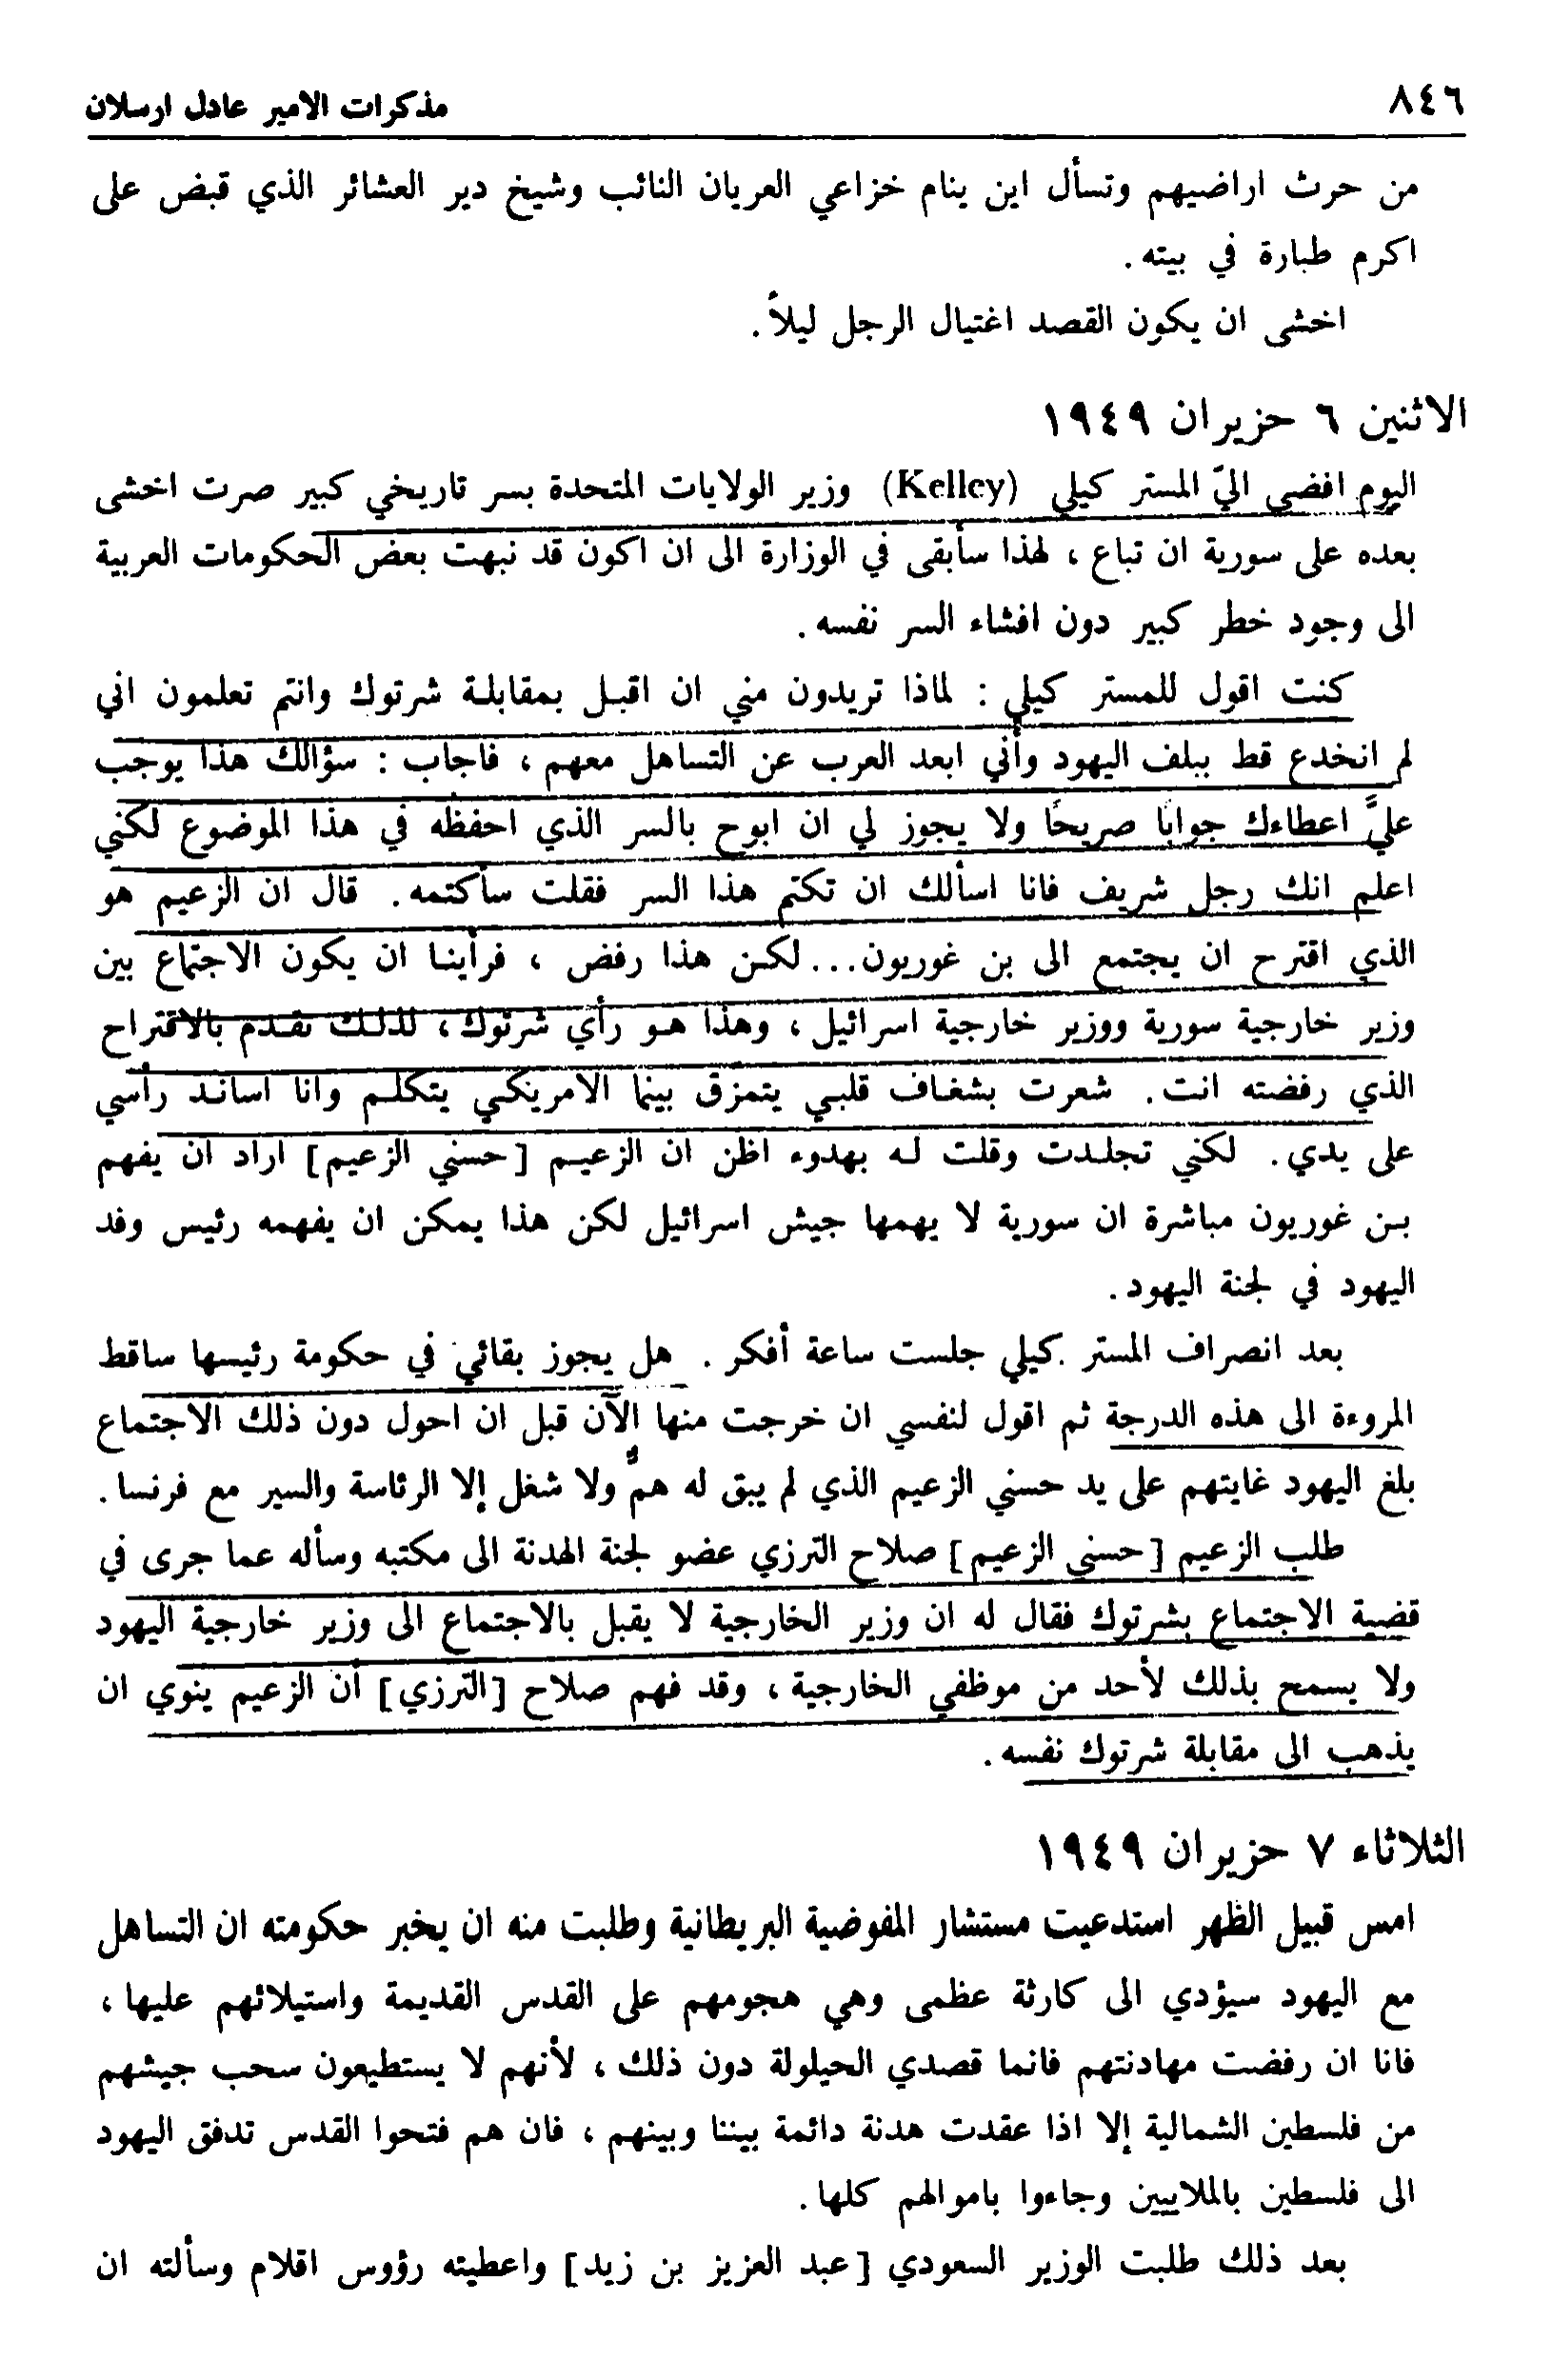 ٨٤٦
مذكرات الامير عادل ارسلان
من حرث اراضيهم وتسأل اين ينام خزاعي العريان النائب وشيخ دير العشائر الذي قبض على
اكرم طبارة في بيته .
اخشى ان يكون القصد اغتيال الرجل ليلاً .
الاثنين ٦ حزيران ١٩٤٩
اليوم افضى اليّ المستر كيلي (Kelley) وزير الولايات المتحدة بسر تاريخي كبير صرت اخشى
بعده على سورية ان تباع ، لهذا سأبقى في الوزارة الى ان اكون قد نبهت بعض الحكومات العربية
الى وجود خطر كبير دون افشاء السر نفسه .
كنت اقول للمستر كيلي : لماذا تريدون مني ان اقبل بمقابلة شرتوك وانتم تعلمون اني
لم انخدع قط ببلف اليهود وأني ابعد العرب عن التساهل معهم ، فاجاب : سؤالك هذا يوجب
عليَّ اعطاءك جوابًا صريحًا ولا يجوز لي ان ابوح بالسر الذي احفظه في هذا الموضوع لكني
اعلم انك رجل شريف فانا اسألك ان تكتم هذا السر فقلت سأكتمه . قال ان الزعيم هو
الذي اقترح ان يجتمع الى بن غوريون...لكن هذا رفض ، فرأينا ان يكون الاجتماع بين
وزير خارجية سورية ووزير خارجية اسرائيل ، وهذا هو رأي شرتوك ، لذلك تقدم بالاقتراح
الذي رفضته انت . شعرت بشغاف قلبي يتمزق بينما الامريكي يتكلم وانا اساند رأسي
على يدي . لكني تجلدت وقلت له بهدوء اظن ان الزعيم [حسني الزعيم] اراد ان يفهم
بن غوريون مباشرة ان سورية لا يهمها جيش اسرائيل لكن هذا يمكن ان يفهمه رئيس وفد
اليهود في لجنة اليهود .
بعد انصراف المستر كيلي جلست ساعة أفكر . هل يجوز بقائي في حكومة رئيسها ساقط
المروءة الى هذه الدرجة ثم اقول لنفسي ان خرجت منها الآن قبل ان احول دون ذلك الاجتماع
بلغ اليهود غايتهم على يد حسني الزعيم الذي لم يبق له همٌّ ولا شغل إلا الرئاسة والسير مع فرنسا .
طلب الزعيم [حسني الزعيم] صلاح الترزي عضو لجنة الهدنة الى مكتبه وسأله عما جرى في
قضية الاجتماع بشرتوك فقال له ان وزير الخارجية لا يقبل بالاجتماع الى وزير خارجية اليهود
ولا يسمح بذلك لأحد من موظفي الخارجية ، وقد فهم صلاح [الترزي] أن الزعيم ينوي ان
يذهب الى مقابلة شرتوك نفسه .
الثلاثاء ٧ حزيران ١٩٤٩
امس قبيل الظهر استدعيت مستشار المفوضية البريطانية وطلبت منه ان يخبر حكومته ان التساهل
مع اليهود سيؤدي الى كارثة عظمى وهي هجومهم على القدس القديمة واستيلائهم عليها ،
فانا ان رفضت مهادنتهم فانما قصدي الحيلولة دون ذلك ، لأنهم لا يستطيعون سحب جيشهم
من فلسطين الشمالية إلا اذا عقدت هدنة دائمة بيننا وبينهم ، فان هم فتحوا القدس تدفق اليهود
الى فلسطين بالملايين وجاءوا باموالهم كلها .
بعد ذلك طلبت الوزير السعودي [عبد العزيز بن زيد] واعطيته رؤوس اقلام وسألته ان